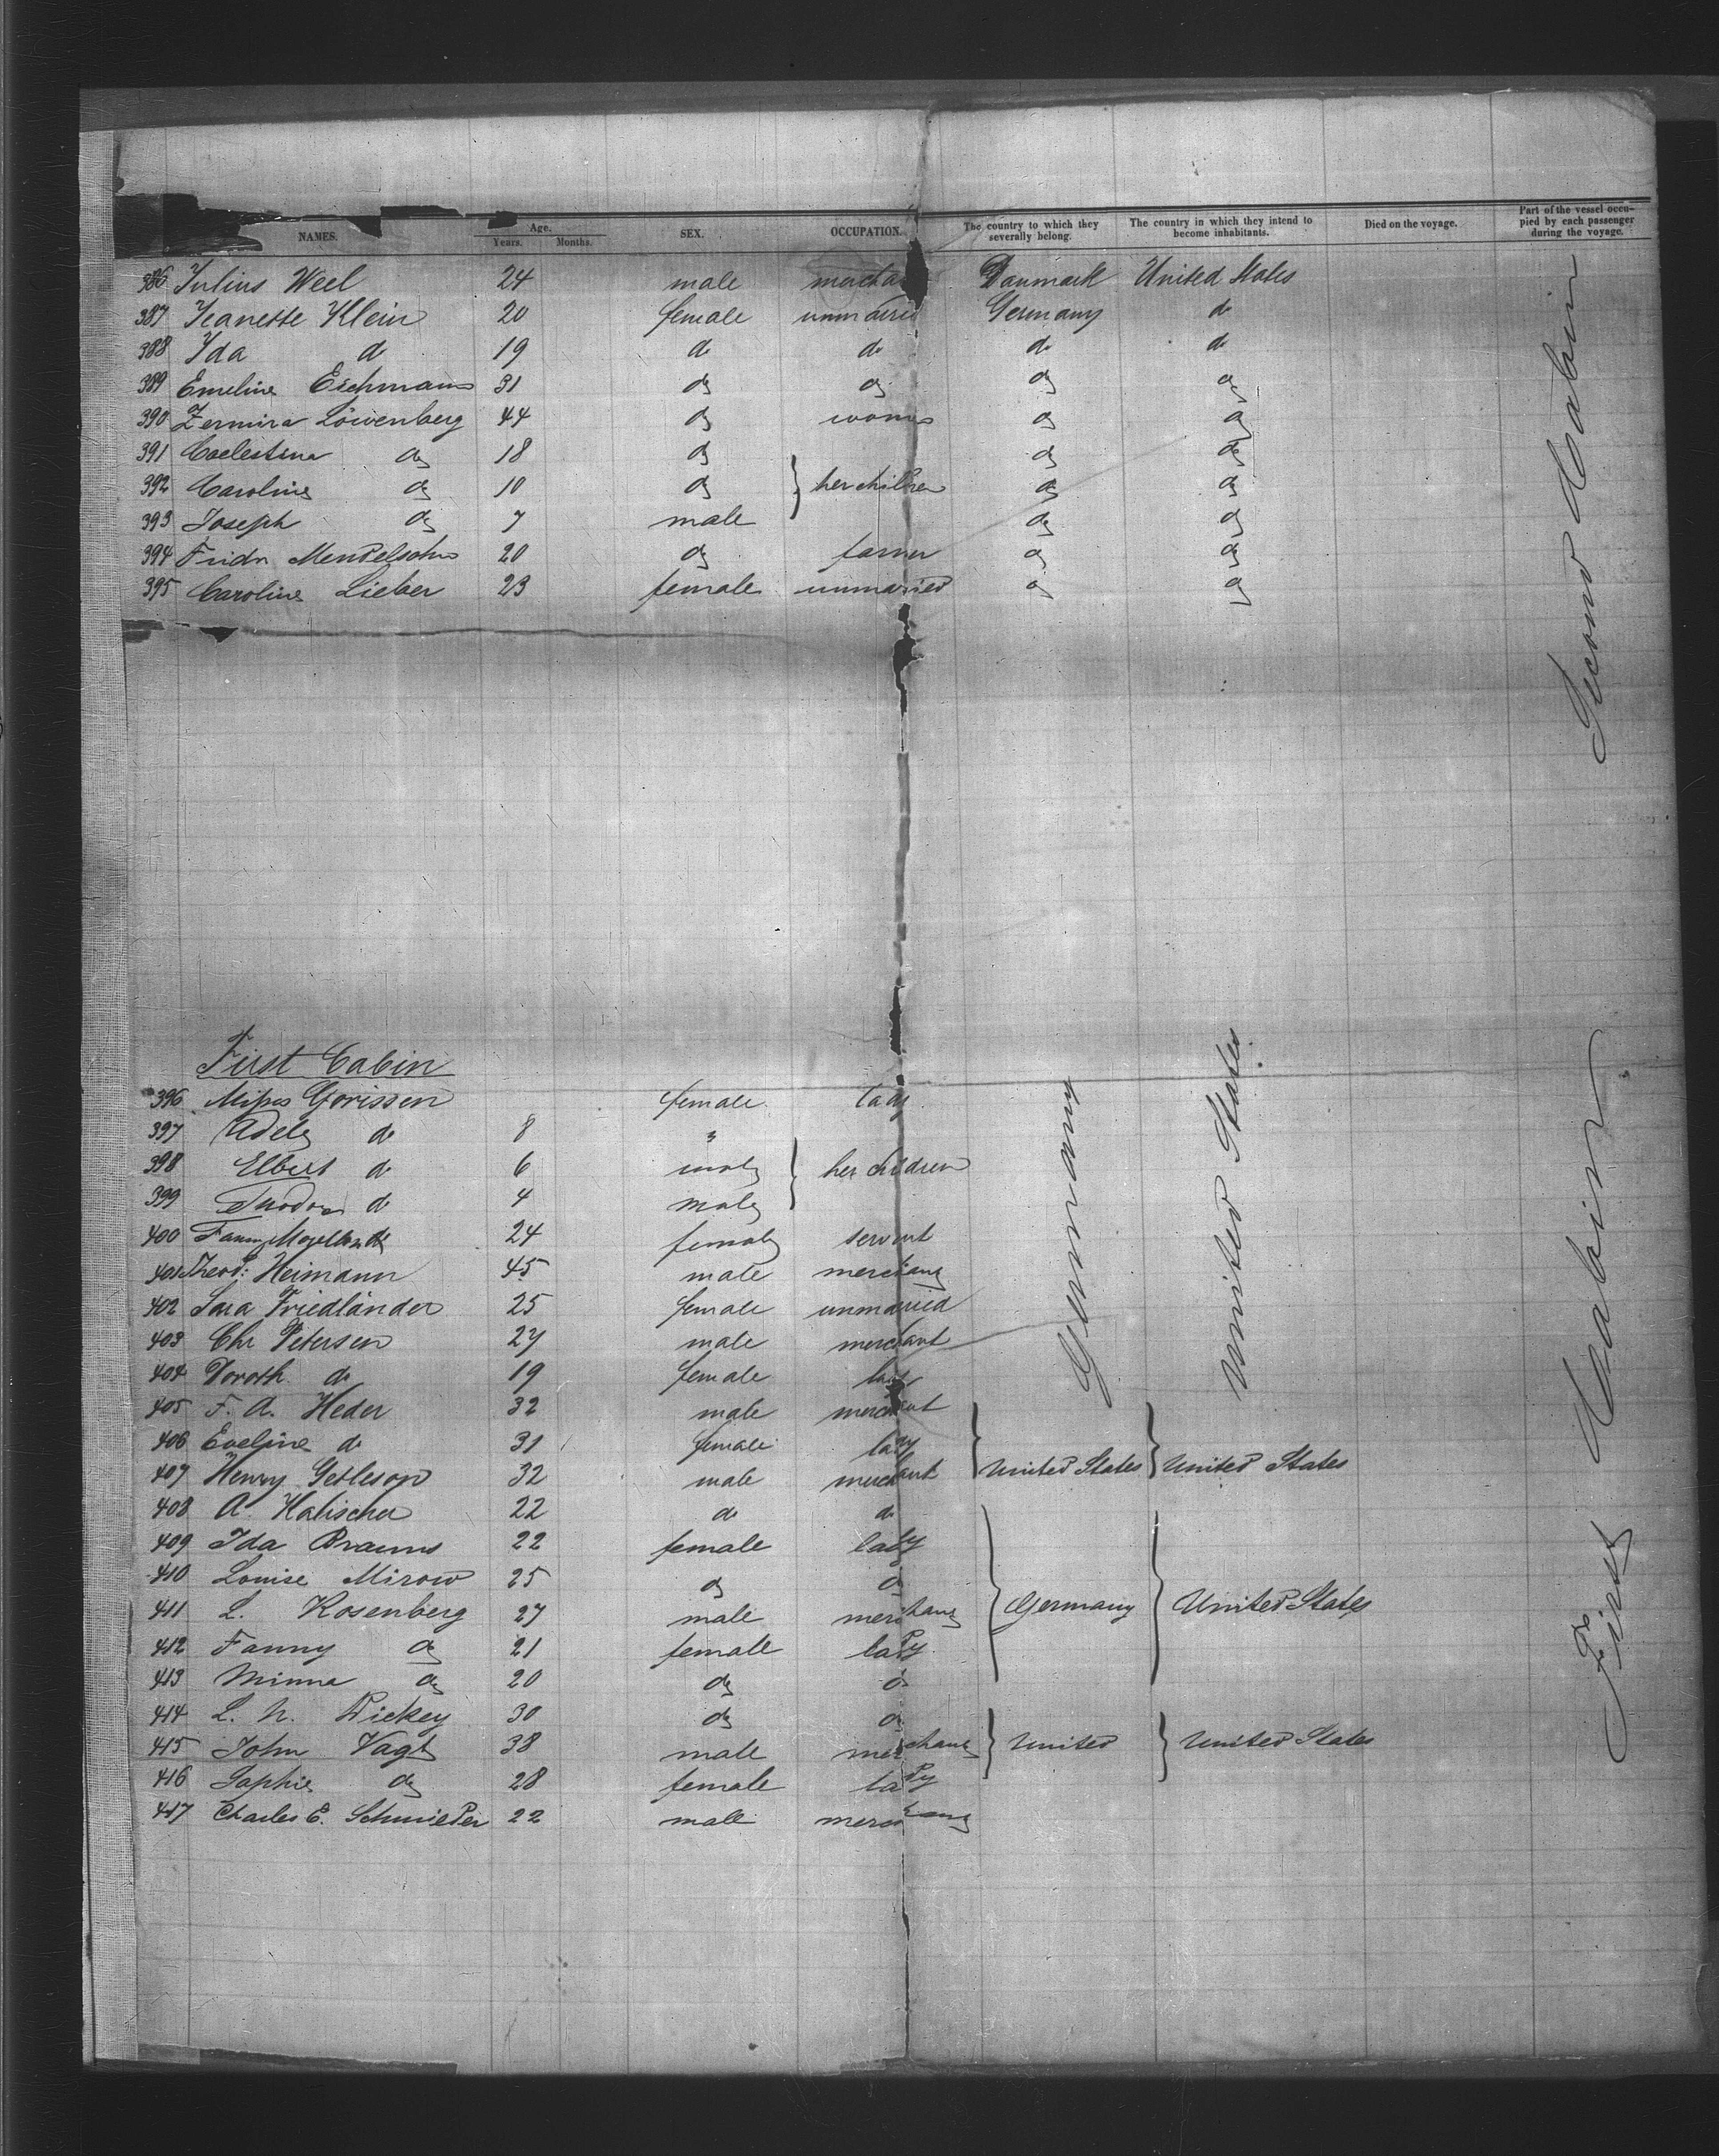 NAMES. Age. Years. Months. SEX. OCCUPATION. The country to which they severally belong. The country in which they intend to become inhabitants. Died on the voyage. Part of the vessel occupied by each passenger during the voyage.
386 Julius Weel 24 male mercha Danmark United States
387 Jeanette Klein 20 female unmaried Germany do
388 Ida do 19 do do do do
389 Emeline Eichmann 31 do do do do
390 Zermira Löwenberg 44 do woman do do
391 Coelestina do 18 do do do
392 Caroline do 10 do } her children do do
393 Joseph do 7 male do do
394 Fridr Mendelsohn 20 do farmer do do
395 Caroline Lieber 23 female unmaried do do
Second Cabin
First Cabin
396 Misses Gorissen female lady
397 Adele do 8 "
398 Elbert do 6 male } her children
399 Thodor do 4 male
400 Fanny 24 female servant
401 Theod: Heimann 45 male merchant
402 Sara Friedländer 25 female unmaried
403 Chr Petersen 27 male merchant
404 Doroth do 19 female lady
Germany United States
405 F. A. Heder 32 male merchant
406 Eveline do 31 female lady
407 Henry Getleson 32 male merchant } United States } United States
408 A. Kalischer 22 do do
409 Ida Brauns 22 female lady
410 Louise Mirow 25 do do
411 L. Rosenberg 27 male merchant } Germany } United States
412 Fanny do 21 female lady
413 Minna do 20 do do
414 L. N. Dickey 30 do do
415 John Vagt 38 male merchant } United } United States
416 Sophie do 28 female lady
417 Charles E. Schmieder 22 male merchant
First Cabin